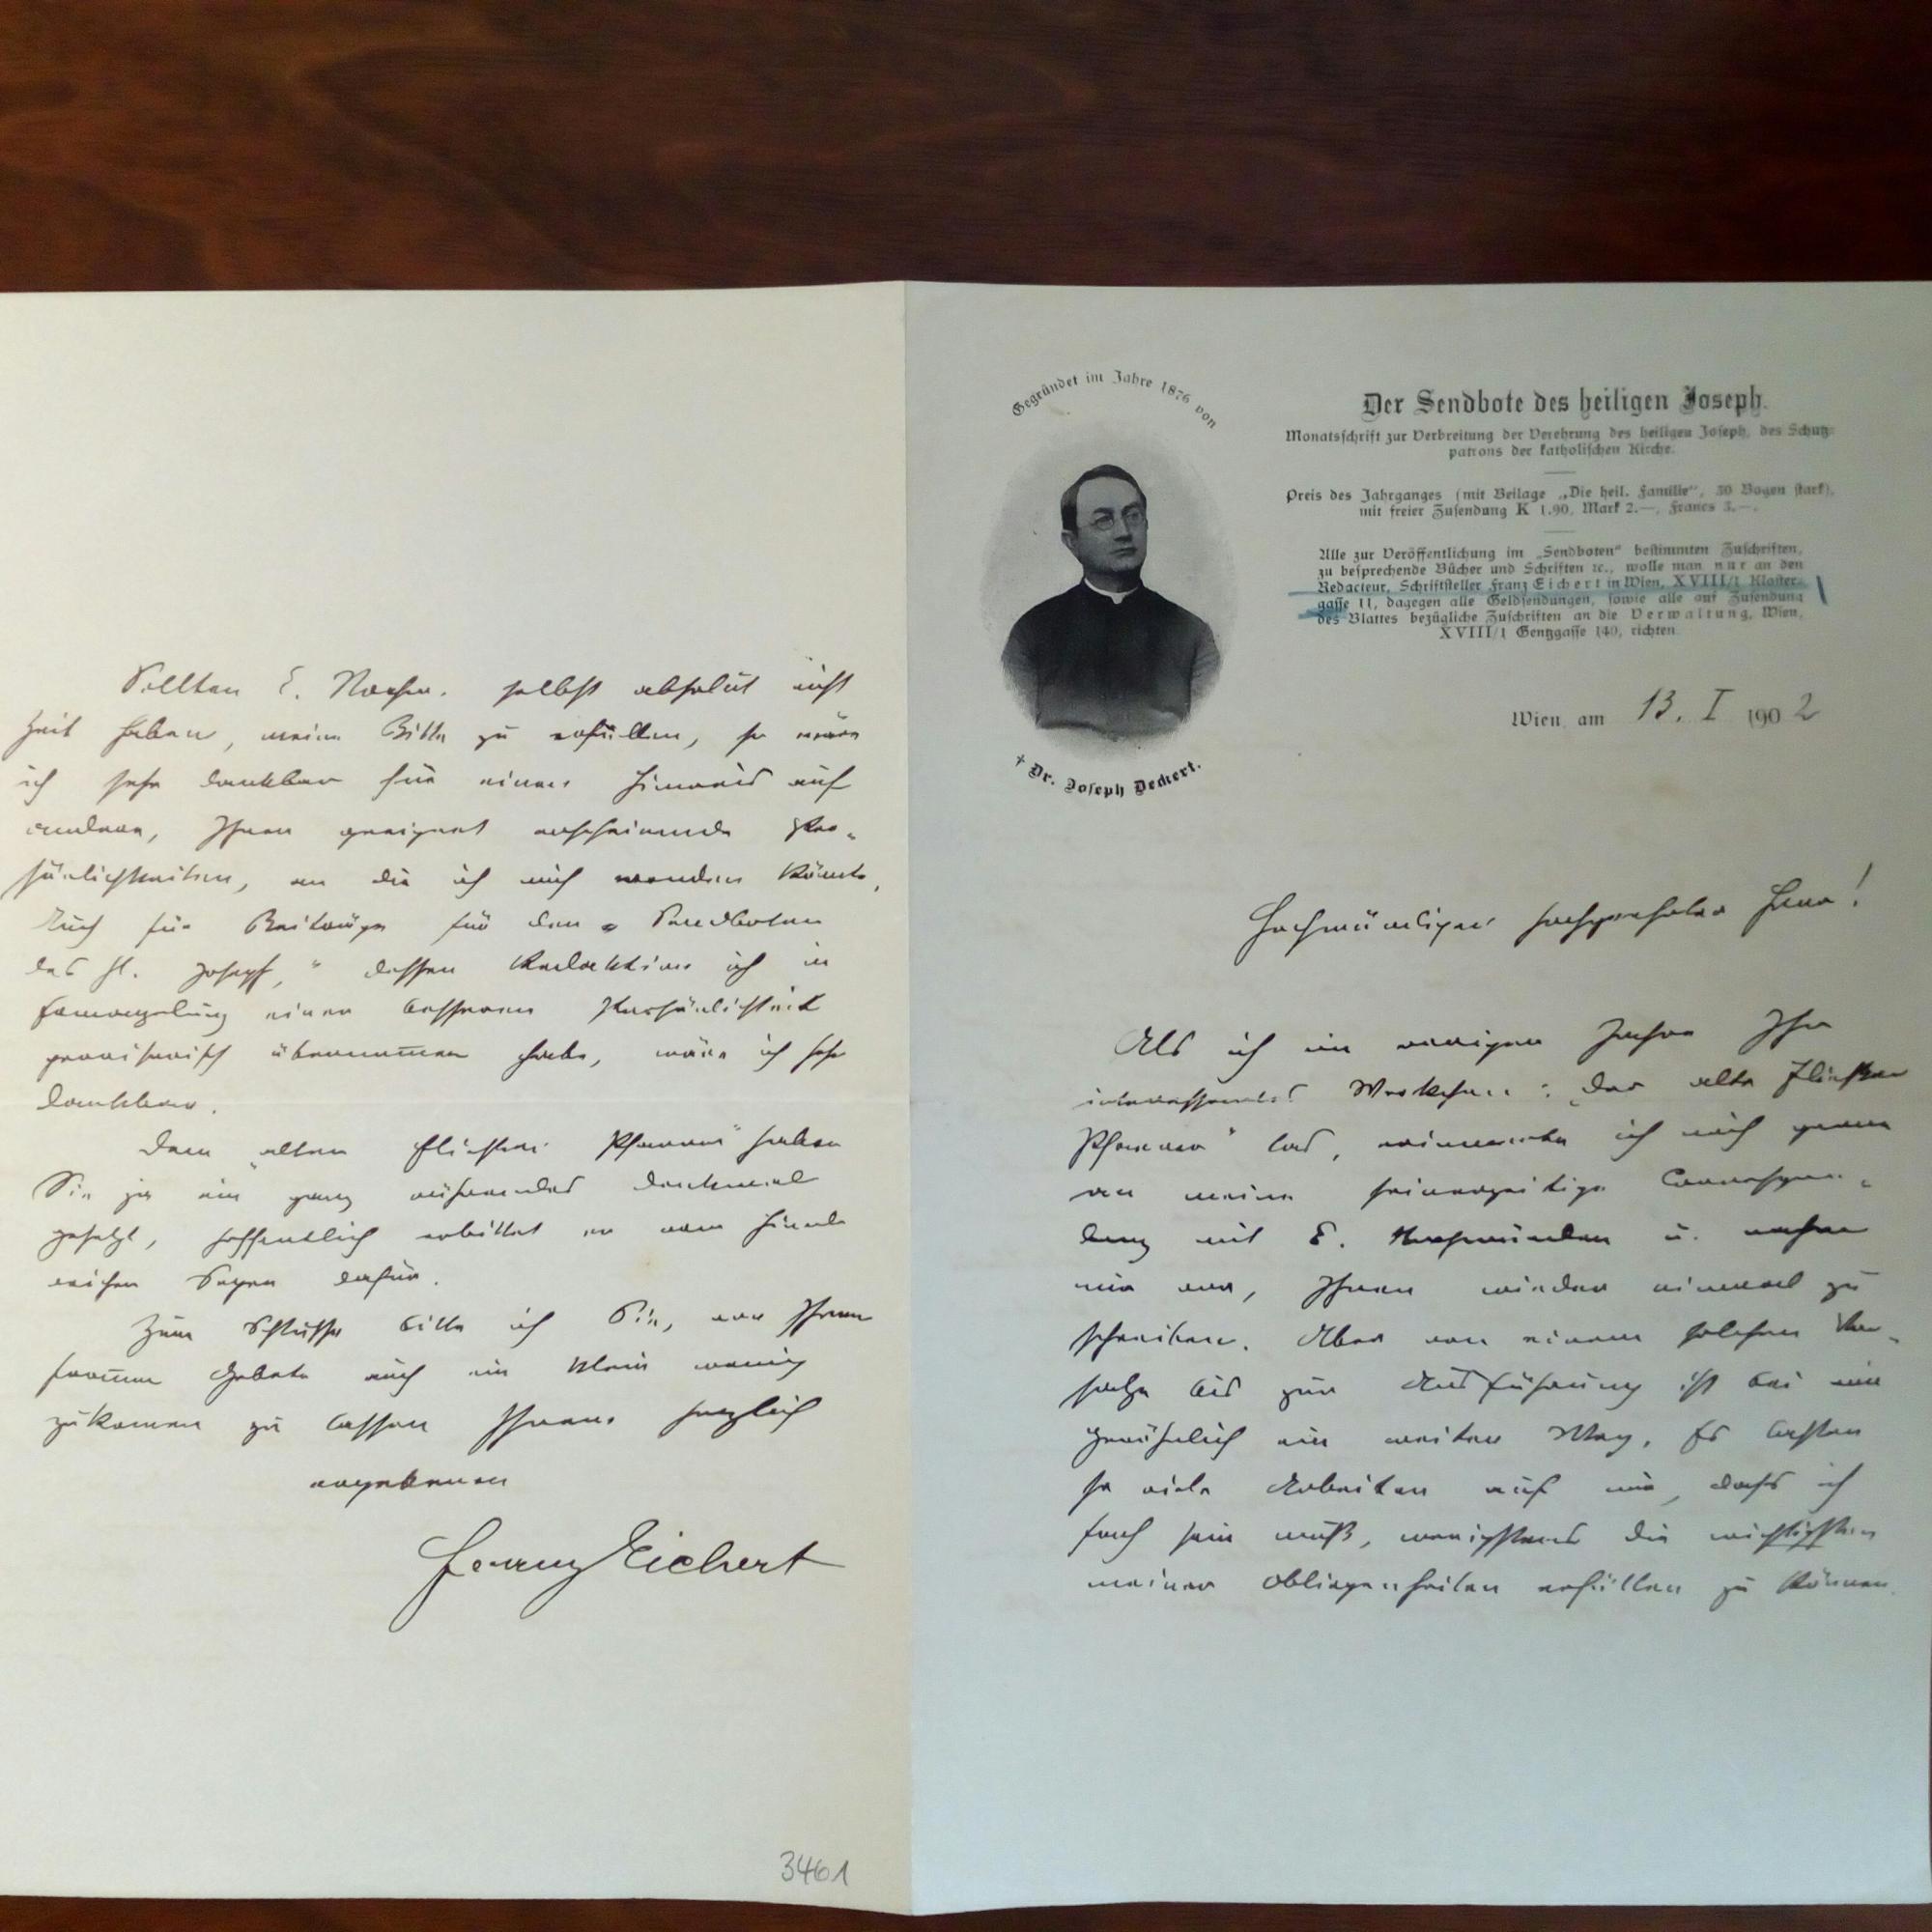 Gegründet im Jahre 1876 von
† Dr. Joseph Deckert.
Der Sendbote des heiligen Joseph.
Monatsschrift zur Verbreitung der Verehrung des heiligen Joseph, des Schutz-
patrons der katholischen Kirche.
Preis des Jahrganges (mit Beilage „Die heil. Familie“, 30 Bogen stark),
mit freier Zusendung K 1.90, Mark 2.—, Francs 3.—.
Alle zur Veröffentlichung im „Sendboten“ bestimmten Zuschriften,
zu besprechende Bücher und Schriften ꝛc., wolle man nur an den
Redacteur, Schriftsteller Franz Eichert in Wien, XVIII/1 Kloster-
gasse 11, dagegen alle Geldsendungen, sowie alle auf Zusendung
des Blattes bezügliche Zuschriften an die Verwaltung, Wien,
XVIII/1 Gentzgasse 140, richten.
Wien, am 13. I 1902
Hochwürdiger hochgeehrter Herr!
Als ich im vorigen Jahre Ihr
interessantes Werkchen: „Der alte Flüester
Pfarrer“ las, erinnerte ich mich gerne
an meine seinerzeitige Correspon-
denz mit E. Hochwürden u. nahm
mir vor, Ihnen wieder einmal zu
schreiben. Aber von einem solchen Vor-
satze bis zur Ausführung ist bei mir
gewöhnlich ein weiter Weg. Es lasten
so viele Arbeiten auf mir, dass ich
froh sein muß, wenigstens die wichtigsten
meiner Obliegenheiten erfüllen zu können.
Sollten E. Hochw. selbst absolut nicht
Zeit haben, meine Bitte zu erfüllen, so wäre
ich sehr dankbar für einen Hinweis auf
andere, Ihnen geeignet erscheinende Per-
sönlichkeiten, an die ich mich wenden könnte.
Auch für Beiträge für den „Sendboten
des hl. Josef,“ dessen Redaktion ich in
Ermangelung einer besseren Persönlichkeit
provisorisch übernommen habe, wäre ich sehr
dankbar.
Dem „alten Flüester Pfarrer“ haben
Sie ja ein ganz rührendes Denkmal
gesetzt, hoffentlich erbittet er vom Himmel
reichen Segen dafür.
Zum Schlusse bitte ich Sie, von Ihrem
from̅en Gebete auch ein klein wenig
zukom̅en zu lassen Ihrem herzlich
ergebenen
Franz Eichert
3461